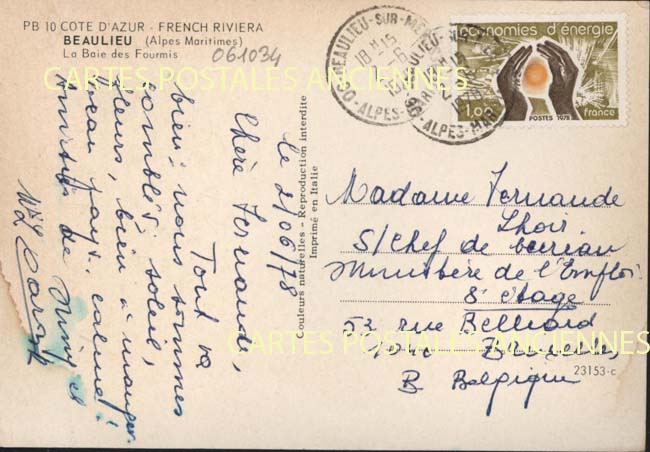 PB 10 COTE D'AZUR - FRENCH RIVIERA
BEAULIEU (Alpes Maritimes)
La Baie des Fourmis
061034
BEAULIEU-SUR-MER
18 H 15
06 ALPES-MAR
économies d'énergie
1,00
POSTES 1978
france
CARTES POSTALES ANCIENNES
le 2/06/78
Chère Fernande,
Tout va
bien: nous sommes
comblés: soleil,
fleurs, bien à manger
beau pays, calme!
Amitiés de Mimi et
Couleurs naturelles - Reproduction interdite
Imprimé en Italie
Madame Fernande
Lhoir
S/Chef de bureau
Ministère de l'Emploi
8e étage
53 rue Belliard
1040 Bruxelles
B Belgique
CARTES POSTALES ANCIENNES
23153-c